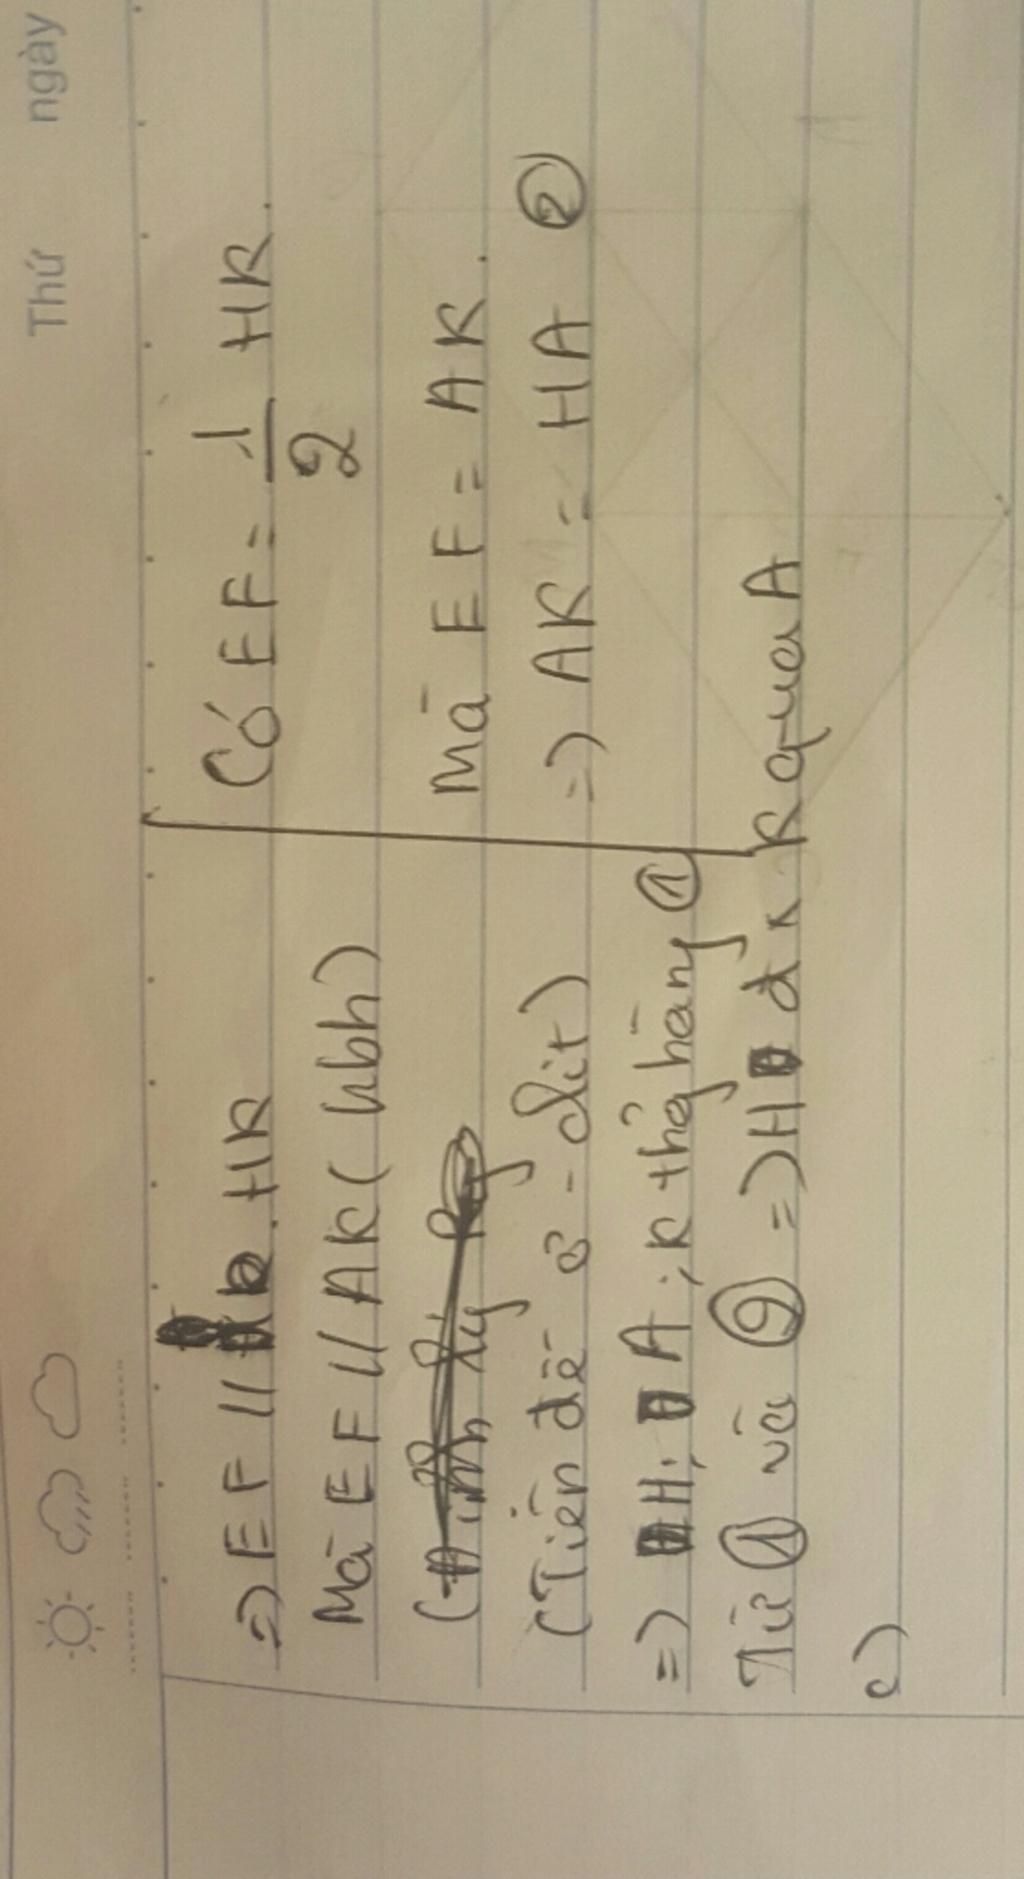 Thứ ngày
=) EF // HK
Mà EF // AK (hbh)
(Tiên đề ơ-clit)
=) H; A; K thẳng hàng ①
Có EF = 1/2 HK.
Mà EF = AK.
=) AK = HA ②
Từ ① và ② =) H đx K qua A
c)